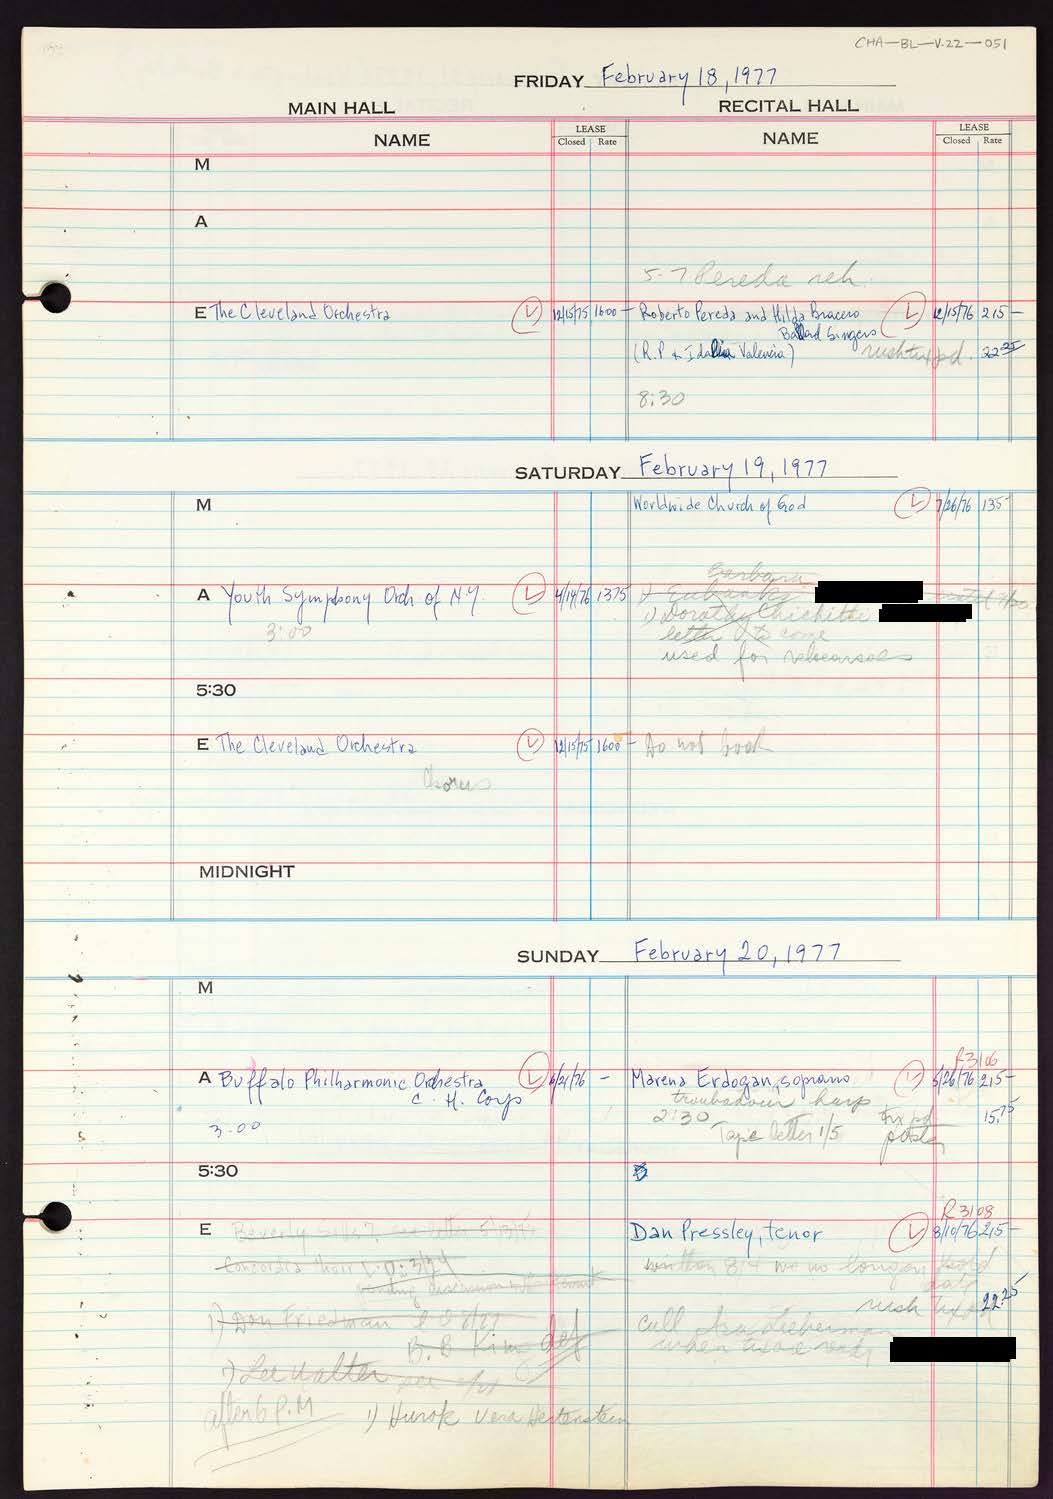 CHA—BL—V.22—051
FRIDAY February 18, 1977
MAIN HALL RECITAL HALL
NAME LEASE Closed Rate NAME LEASE Closed Rate
M
A
5-7 Pereda reh.
E The Cleveland Orchestra L 12/15/75 1600— Roberto Pereda and Hilda Bracero L 12/15/76 215—
Ballad Singers
(R.P & Idalia Valencia) rush tix pd. 22.25
8:30
SATURDAY February 19, 1977
M Worldwide Church of God L 7/26/76 135—
Barbara
A Youth Symphony Orch of N.Y. L 4/14/76 1375 1) Eubanks
3:00 1) Dorothy
letter to come
used for rehearsals
5:30
E The Cleveland Orchestra L 12/15/75 1600— Do not book
Chorus
MIDNIGHT
SUNDAY February 20, 1977
M
R3106
A Buffalo Philharmonic Orchestra L 6/21/76 — Marena Erdogan, soprano L 5/26/76 215—
C. H. Corp troubadour harp
3:00 2:30 tix pd 15.75
Tape letter 1/5
5:30
R3108
E Beverly Sills? see letter Dan Pressley, tenor L 8/10/76 215—
Concordia Choir written 8/4 we no longer hold
pending discussion date
rush tix pd 22.25
1) Don Friedman call Ira Lieberman
B.B King def when tix are ready
1) Lee Walter
after 6 P.M 1) Hurok Vera Hertenstein